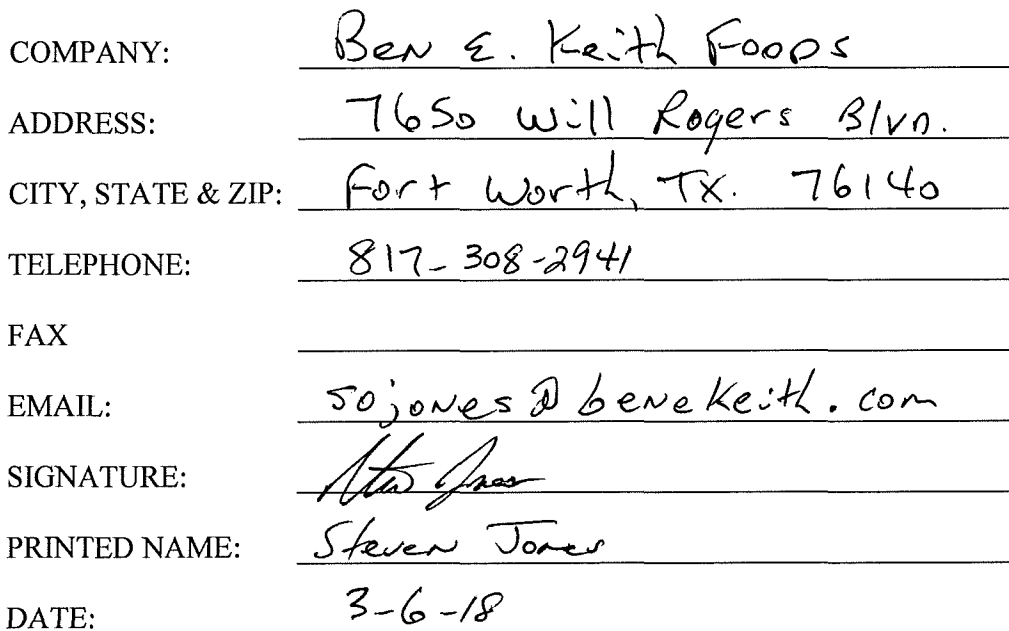 COMPANY: Ben E. Keith Foods
ADDRESS: 7650 Will Rogers Blvd.
CITY, STATE & ZIP: Fort Worth, TX. 76140
TELEPHONE: 817-308-2941
FAX
EMAIL: sojones@benekeith.com
SIGNATURE: Steven Jones
PRINTED NAME: Steven Jones
DATE: 3-6-18